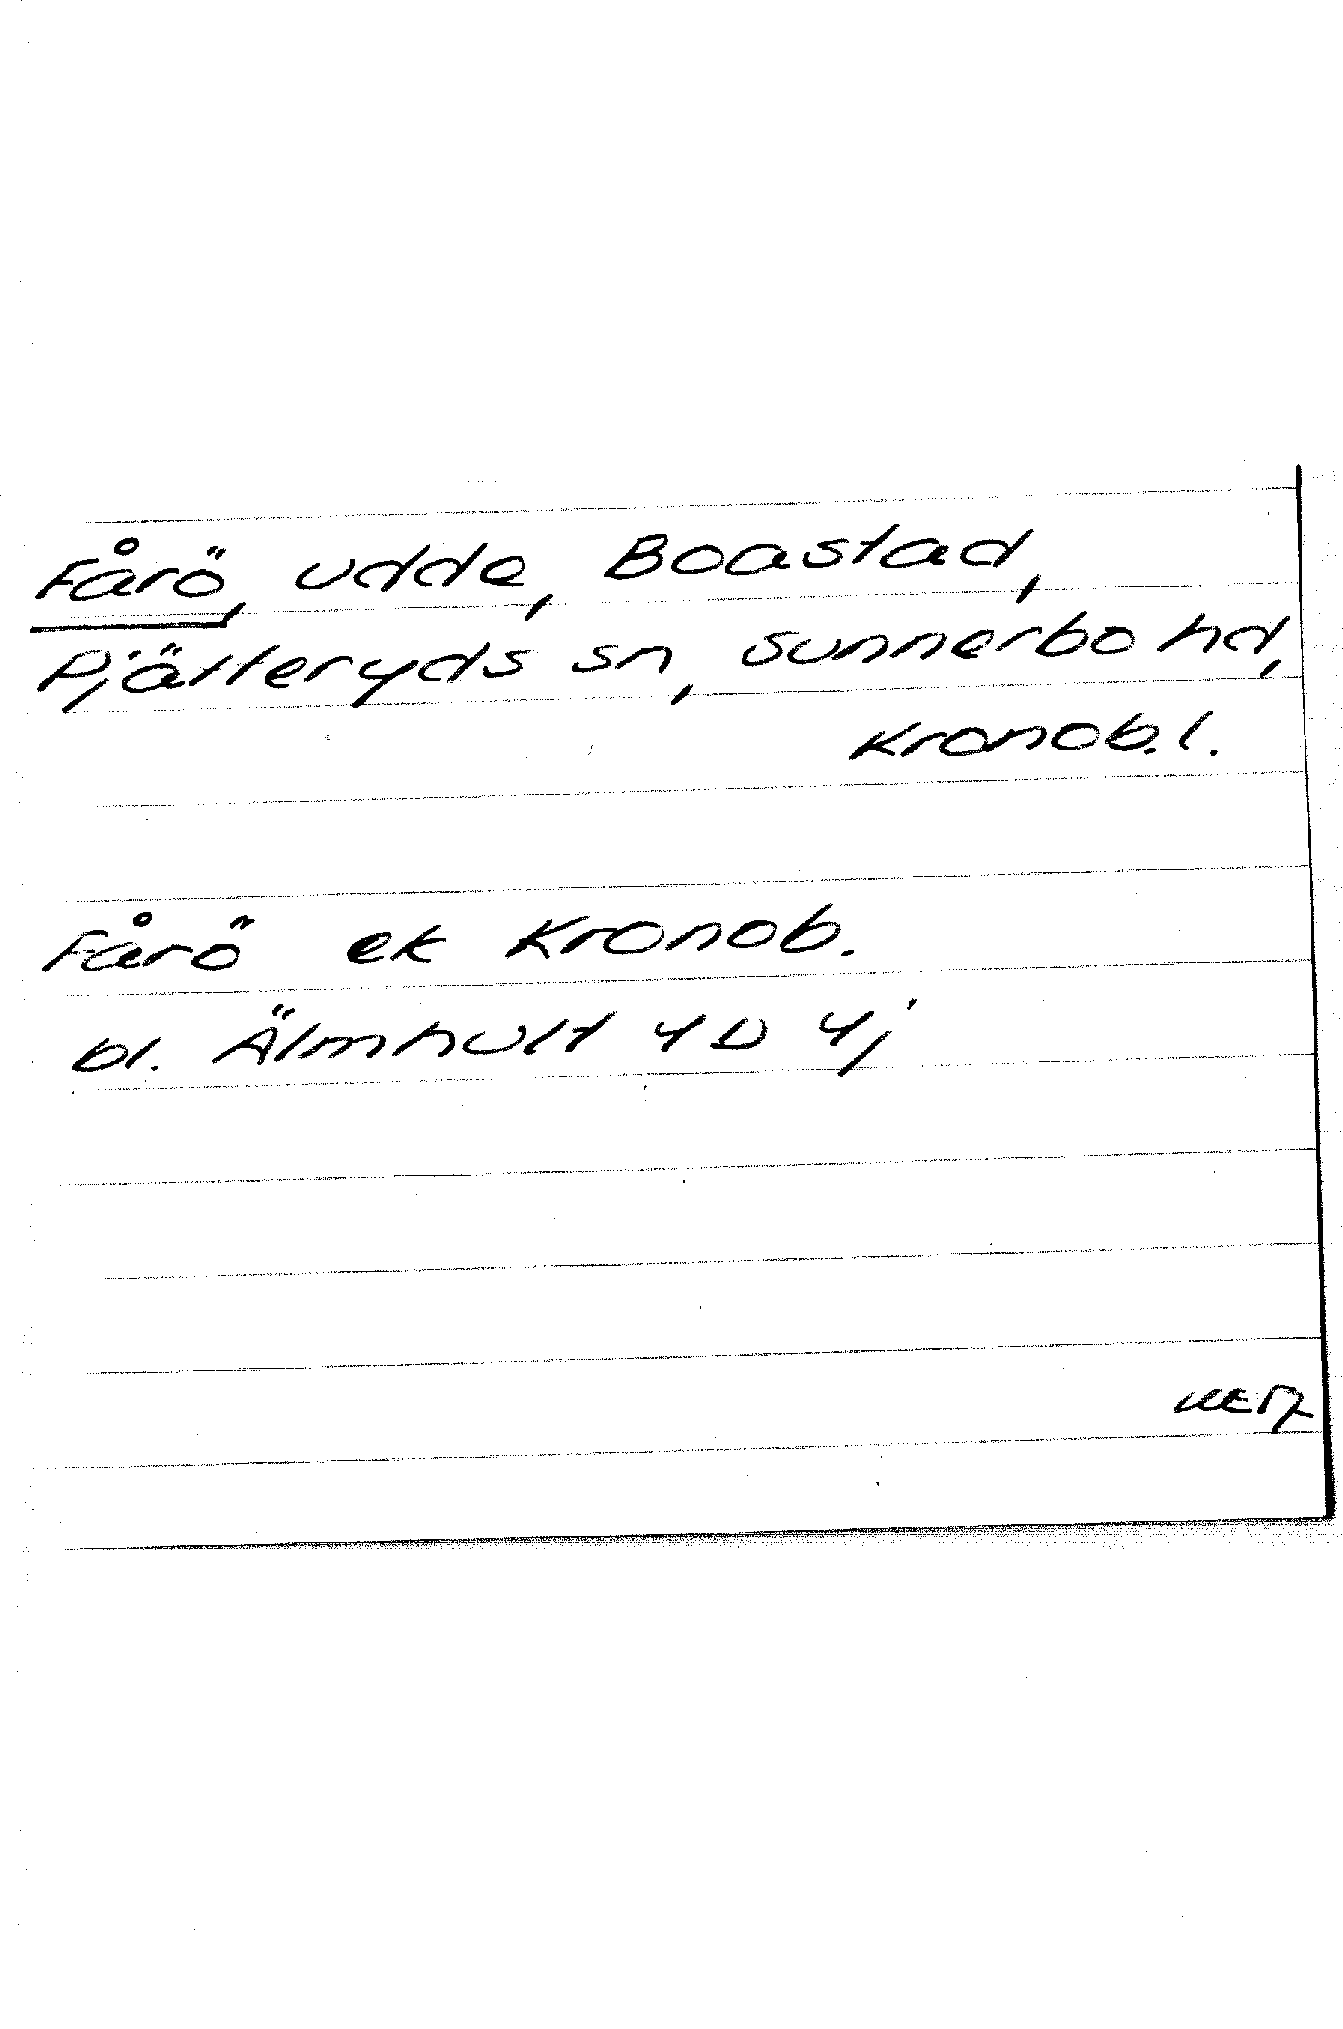 Fårö, udde, Boastad,
Pjätteryds sn, Sunnerbo hd,
Kronob. l.
Fårö ek Kronob.
bl. Älmhult 4D 4j